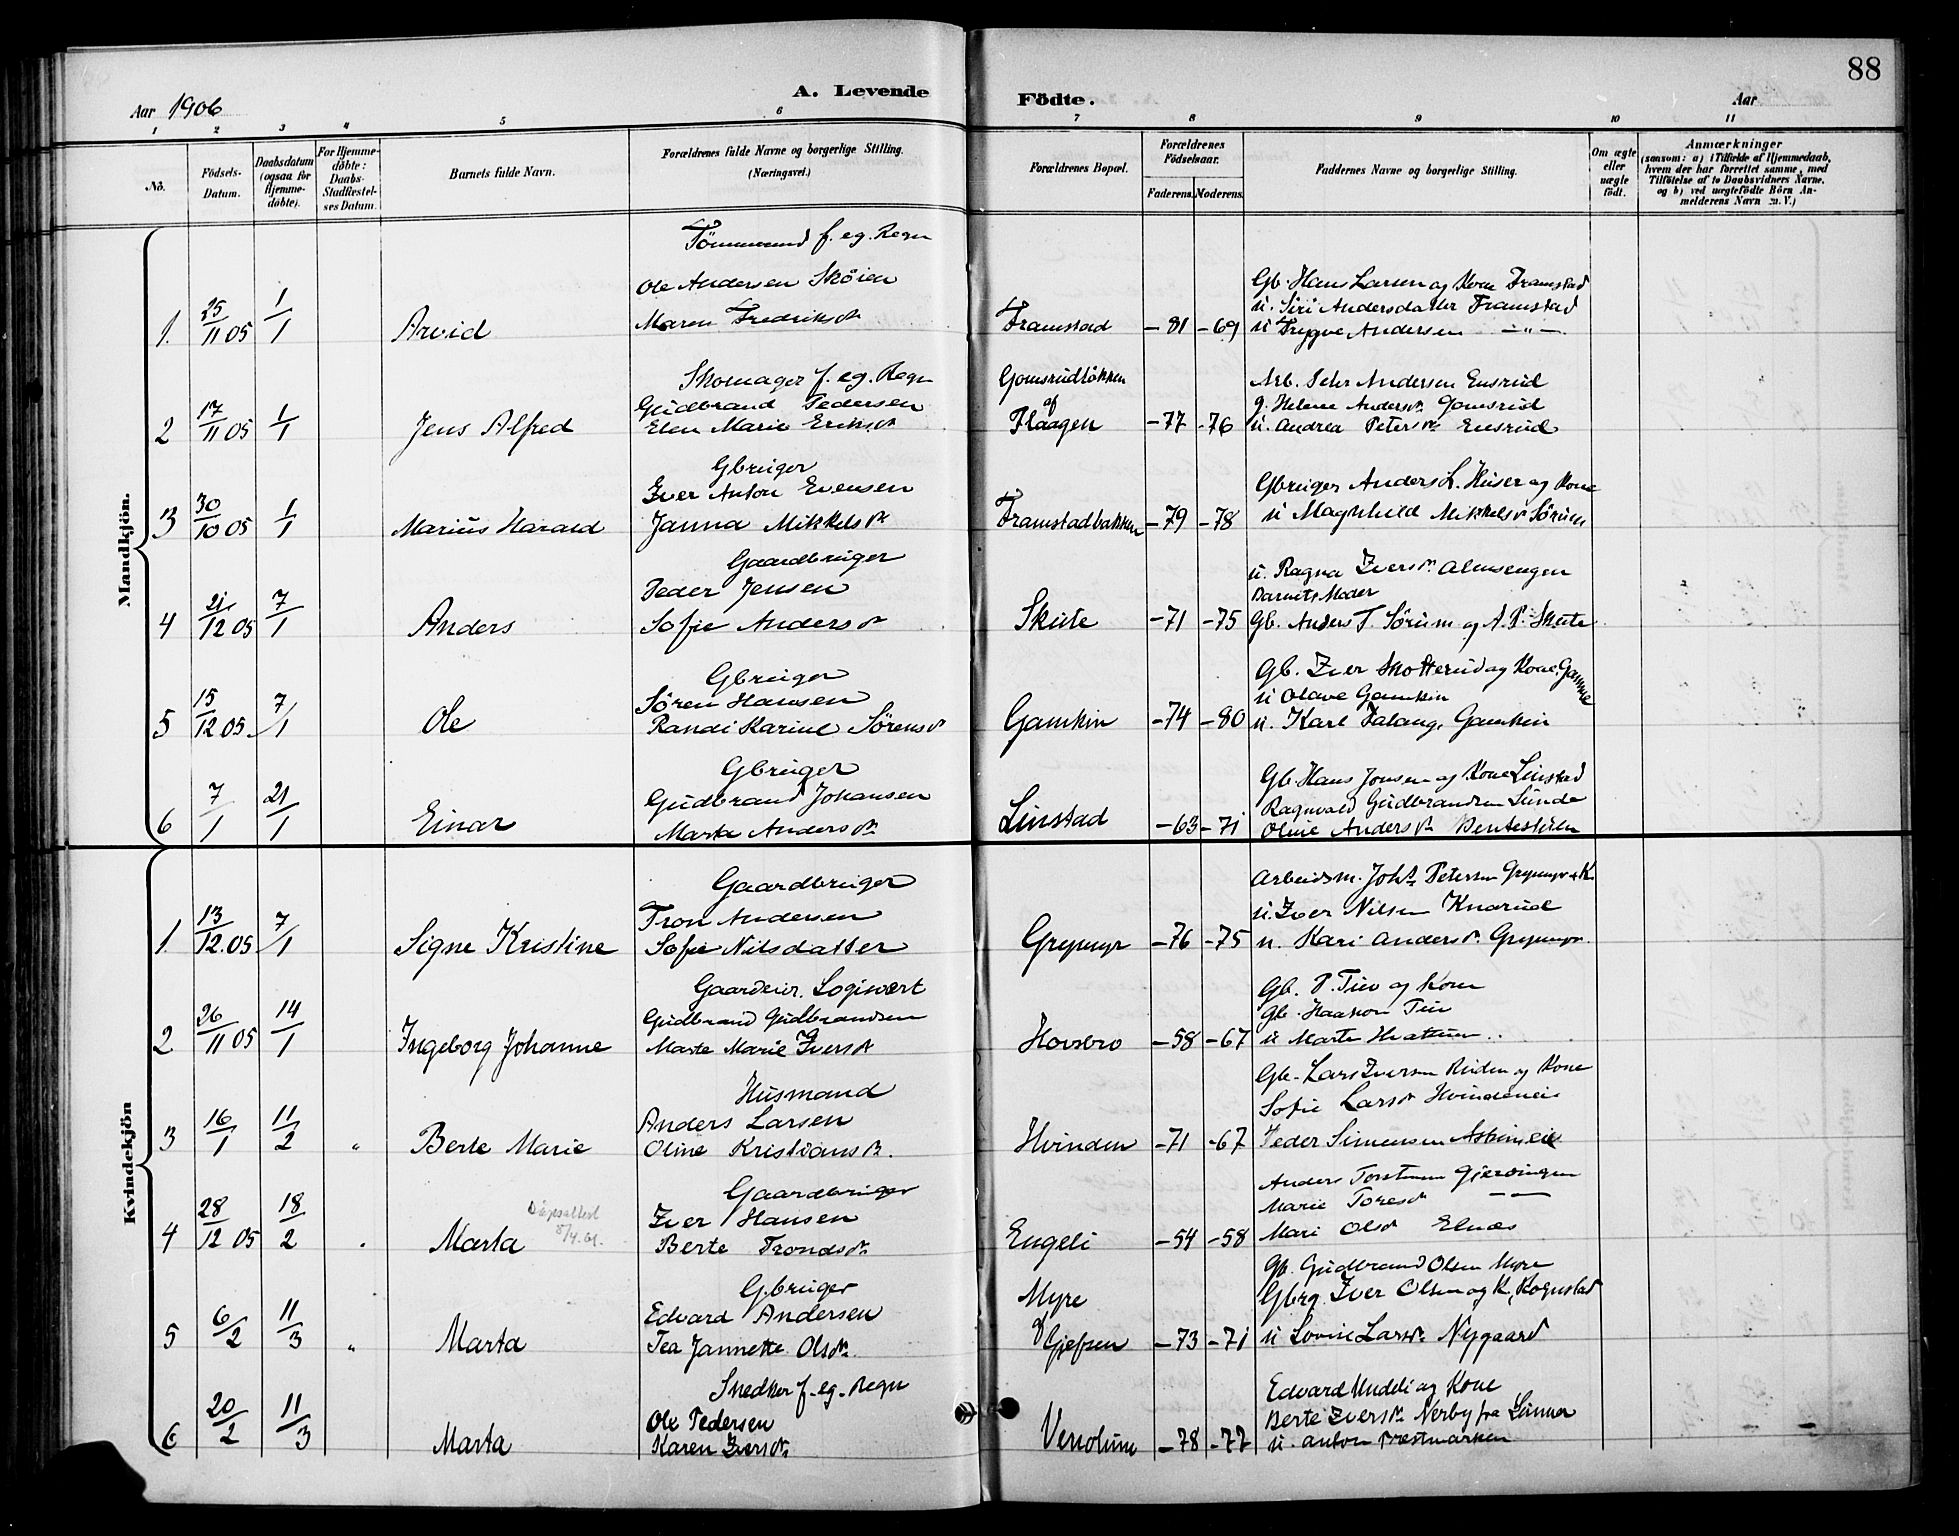 88
Aar 1906
A. Levende Födte.
Aar
1 2 3 4 5 6 7 8 9 10 11
No.
Födsels-Datum.
Daabsdatum (ogsaa for Hjemme-döbte).
For Hjemme-döbte: Daabs-Stadfæstel-ses Datum.
Barnets fulde Navn.
Forældrenes fulde Navne og borgerlige Stilling. (Næringsvei.)
Forældrenes Bopæl.
Forældrenes Födselsaar.
Faderens. Moderens.
Faddernes Navne og borgerlige Stilling.
Om ægte eller uægte födt.
Anmærkninger
(saasom: a) i Tilfælde af Hjemmedaab, hvem der har forrettet samme, med Tilföielse af to Daabsvidners Navne, og b) ved uægtefödte Börn An-melderens Navn m. V.)
Mandkjön.
1. 25/11 05 1/1 Arvid
Tömmermand f. eg. Regn
Ole Andersen Sköien
Maren Fredriksdr
Framstad -81 -69
Gb. Hans Larsen og Kone Framstad
u. Siri Andersdatter Framstad
u Trygve Andersen —"—
2 17/11 05 1/1 Jens Alfred
Skomager f. eg. Regn
Gudbrand Pedersen
Elen Marie Eriksdr
Gomsrudlökken
af
Flaagen -77 -76
Arb. Peter Andersen Ensrud
g. Helene Andersdr Gomsrud
u. Andrea Petersdr Ensrud
3 30/10 05 1/1 Marius Harald
Gbruger
Iver Anton Evensen
Janna Mikkelsdr
Framstadbakken -79 -78
Gbruger Anders L. Huser og Kone
u Magnhild Mikkelsdr Sörum
4 21/12 05 7/1 Anders
Gaardbruger
Peder Jensen
Sofie Andersdr
Skute -71 -75
u. Ragna Iversdr Almsengen
Barnets Moder
Gb. Anders T. Sörum og A. P. Skute
5 15/12 05 7/1 Ole
Gbruger
Sören Hansen
Randi Karine Sörensdr
Gamkin -74 -80
Gb. Iver Skotterud og Kone. Gamme
u Olave Gamkin
u. Karl Falang, Gamkin
6 7/1 21/1 Einar
Gbruger
Gudbrand Johansen
Marte Andersdr
Linstad -63 -71
Gb. Hans Jonsen og Kone Linstad
Ragnvald Gudbrandsen Lunde
Oline Andersdr
Kvindekjön
1. 13/12.05 7/1 Signe Kristine
Gaardbruger
Tron Andersen
Sofie Nilsdatter
Grymyr -76 -75
Arbeidsm. Johs Petersen Grymyr & K.
u. Iver Nilsen Knarud
u. Kari Andersdr Grymyr.
2 26/11 05 14/1 Ingeborg Johanne
Gaardeier. Logivært
Gudbrand Gudbrandsen
Marte Marie Iversdr
Hovsbro -58 -67
Gb. P. Tiu og Kone
Gb. Haakon Tiu
u Marte
3 16/1 11/2 " Berte Marie
Husmand
Anders Larsen
Oline Kristiansdr.
Hvinden -71 -67
Gb. Lars Iversen Ruden og Kone
Sofie Larsdr Hvindeneie
Peder Simensen Askimeie
4 28/12 05 18/2 Marta
Daapsattest
8/4.61.
Gaardbruger
Iver Hansen
Berte Trondsdr
Engeli -54 -58
Anders Torstensen Gjerdingen
Marie Toresdr — —
Mari Olsdr Elnæs
5 6/2 11/3 " Marta
Gbruger
Edvard Andersen
Tea Jannette Olsdr
Myre
af Gjefsen -73 -71
Gb. Gudbrand Olsen Myre
Gbrg. Iver Olsen og K, Rognstad
u Lovise Larsdr Nygaard
6 20/2 11/3 Marta
Snedker f. eg. Regn
Ole Pedersen
Karen Iversdr
Venolum -78 -77
Edvard Huddeli og Kone
Berte Iversdr Nerby fra Lunner
u. Anton Prestmarken